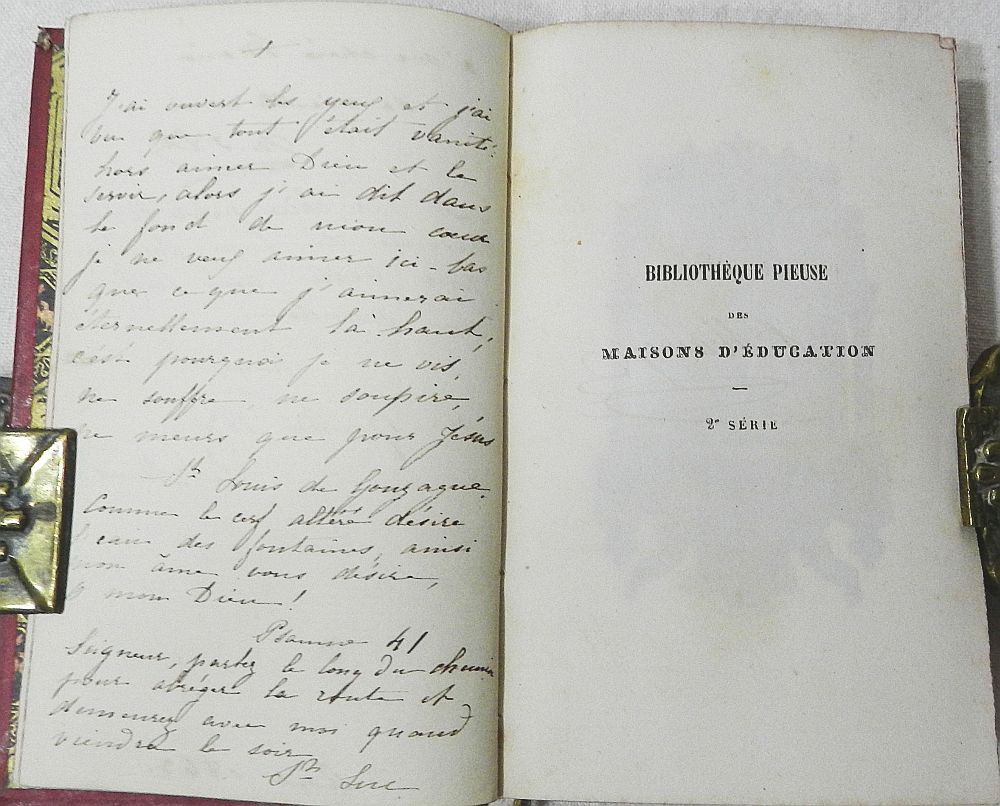 J'ai ouvert les yeux et j'ai
vu que tout était vanité
hors aimer Dieu et le
servir, alors j'ai dit dans
le fond de mon cœur
je ne veux aimer ici-bas
que ce que j'aimerai
éternellement là haut,
c'est pourquoi je ne vis,
ne souffre, ne soupire,
ne meurs que pour Jésus
St Louis de Gonzague.
Comme le cerf altéré désire
l'eau des fontaines, ainsi
mon âme vous désire,
ô mon Dieu!
Psaume 41
Seigneur, parlez le long du chemin
pour abréger la route et
demeurez avec moi quand
viendra le soir
St Luc
BIBLIOTHÈQUE PIEUSE
DES
MAISONS D'ÉDUCATION
2e SÉRIE